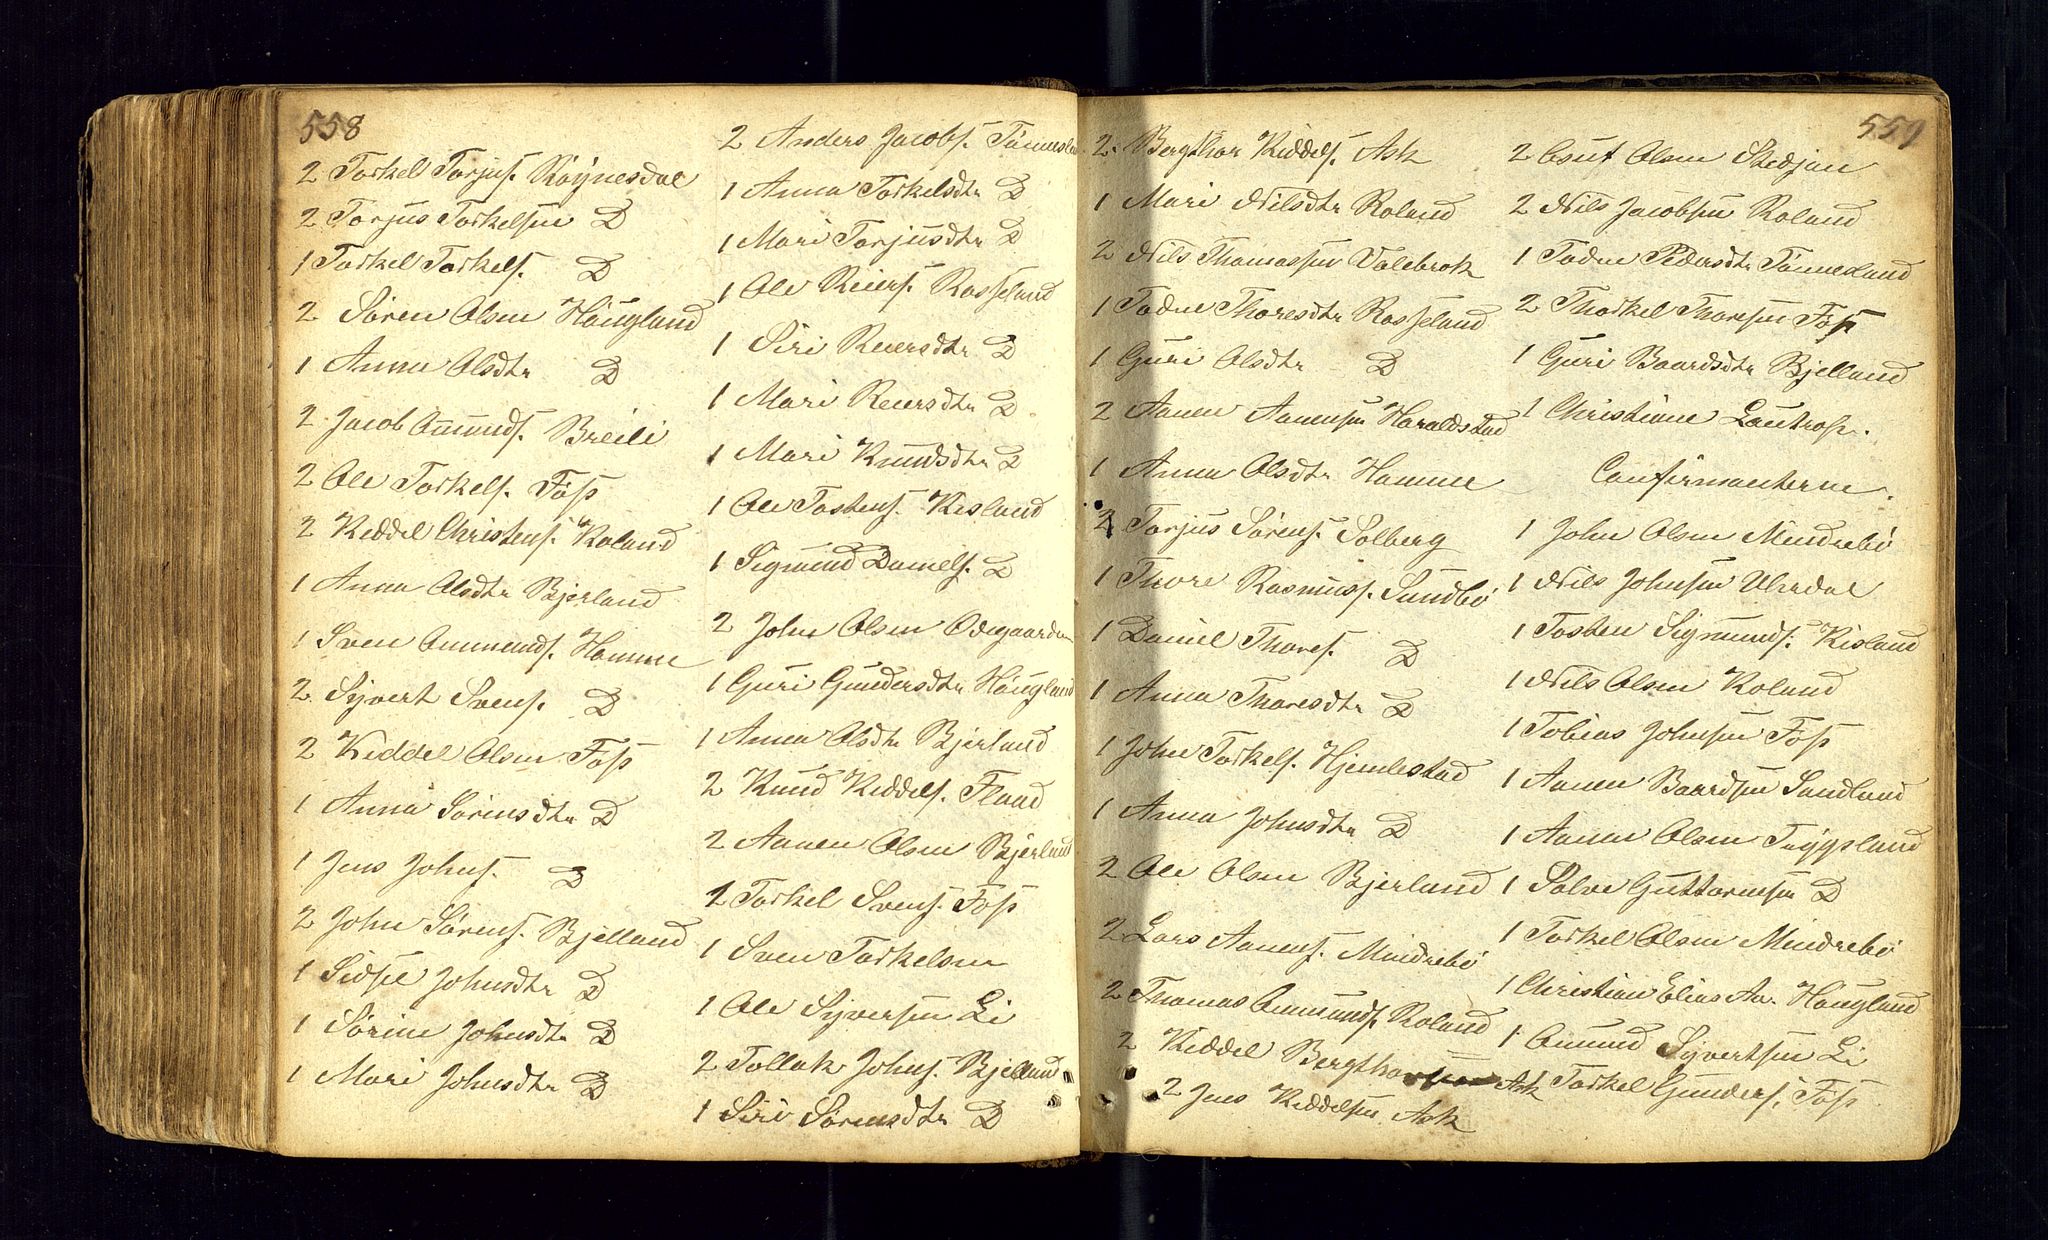 558
2 Torkel Torjus. Röynesdal
2 Torjus Torkelsen D
1 Torkel Torkels. D
2 Sören Olsen Höugland
1 Anna Olsdtr D
2 Jacob Aumunds. Breili
2 Ole Torkels. Fös
2 Keddel Christens. Roland
1 Anna Olsdtr Bjerland
1 Sven Aummunds. Homme
2 Syvert Svens. D
2 Keddel Olsen Fös
1 Anna Sörensdtr D
1 Jens Johns. D
2 John Sörens. Bjelland
1 Sidsel Johnsdtr D
1 Sörine Johnsdtr D
1 Mari Johnsdtr D
2 Anders Jacobs. Tönnesland
1 Anna Torkelsdtr D
1 Mari Torjusdtr D
1 Ole Reiers. Rosseland
1 Siri Reiersdtr D
1 Mari Reiersdtr D
1 Mari Knudsdtr D
1 Ole Tostens. Kisland
1 Sigmund Daniels. D
2 John Olsen Odegaarden
1 Guri Gundersdtr Höugland
1 Anna Olsdtr Bjerland
2 Knud Keddels. Flaad
2 Aanen Olsen Bjerland
2 Torkel Svens. Fös
1 Sven Torkelsen
1 Ole Syversen Li
2 Tollak Johns. Bjelland
1 Siri Sörensdtr D
559
2 Bergthor Keddels. Ask
1 Mari Nilsdtr Roland
2 Nils Thomassen Valebrok
1 Todne Thoresdtr Rosseland
1 Guri Olsdtr D
2 Aanen Aanensen Haraldstad
1 Anna Olsdtr Homme
2 Torjus Sörens. Solberg
1 Thore Rasmuss. Sundbö
1 Daniel Thores. D
1 Anna Thoresdtr D
1 John Torkels. Hjemlestad
1 Anna Johnsdtr D
2 Ole Olsen Bjerland
2 Lars Aanens. Mindrebö
2 Thomas Aummunds. Roland
2 Keddel Bergthorsen Ask
2 Jens Keddelsen Ask
2 Asuf Olsen Stedjan
2 Nils Jacobsen Roland
1 Todne Pedersdtr Tönnesland
2 Thorkel Thoresen Fös
1 Guri Baardsdtr Bjelland
1 Christiane Lautrop.
Confirmanterne.
1 John Olsen Mindrebö
1 Nils Johnsen Ulvedal
1 Tosten Sigmunds. Kisland
1 Nils Olsen Roland
1 Tobias Johnsen Fös
1 Aanen Baardsen Sandland
1 Aanen Olsen Tryggsland
1 Salve Guttormsen D
1 Torkel Olsen Mindrebö
1 Christian Elias Aa. Höugland
1 Aumund Syvertsen Li
Torkel Gunders. Fös